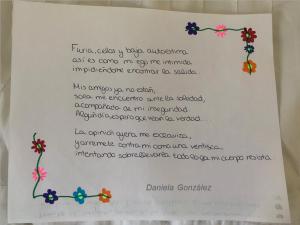 Furia, celos y baja autoestima
así es como mi ego me intimida
impidiéndome encontrar la salida.
Mis amigos ya no están,
sola me encuentro ante la soledad,
acompañada de mi inseguridad.
Algún día, espero que vean la verdad.
La opinión ajena me esclaviza,
y arremete contra mi como una ventisca
intentando sobrellevarla todo lo que mi cuerpo resista.
Daniela González